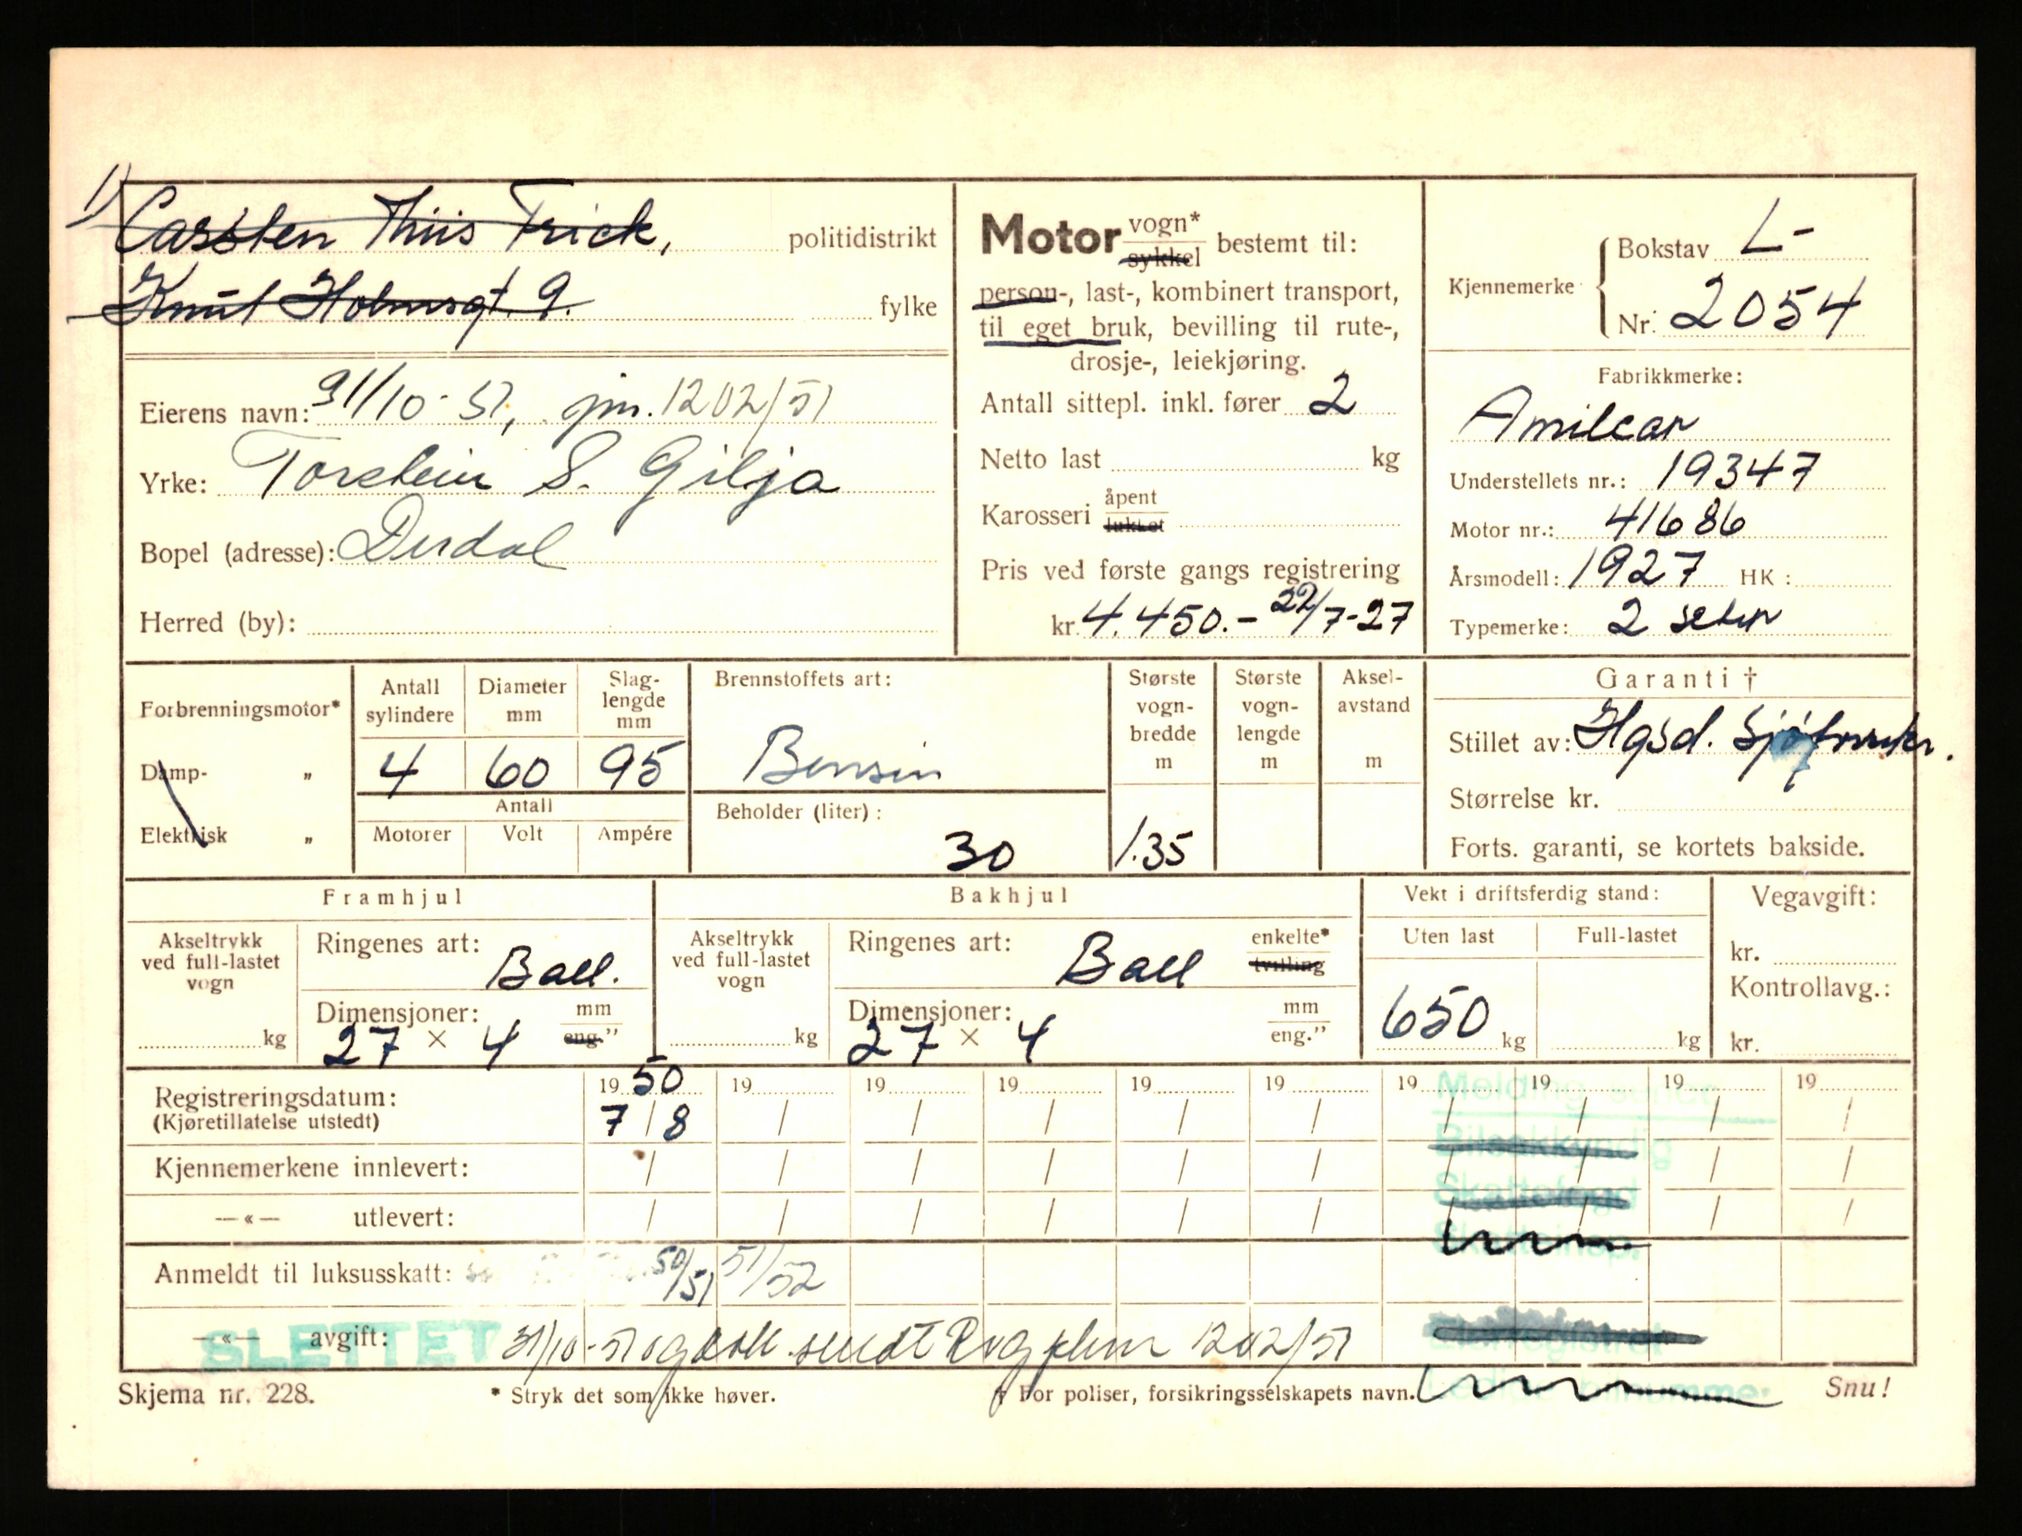 1) Carsten Thiis Frick, politidistrikt
Knut Holmsgt. 9. fylke
Eierens navn: 31/10-51, jnr. 1202/51
Yrke: Torstein S. Gilja
Bopel (adresse): Dirdal
Herred (by):
Motor vogn* sykkel bestemt til:
person-, last-, kombinert transport,
til eget bruk, bevilling til rute-,
drosje-, leiekjøring.
Antall sittepl. inkl. fører 2
Netto last kg
Karosseri åpent lukket
Pris ved første gangs registrering
kr. 4.450.- 22/7-27
Kjennemerke Bokstav L-
Nr. 2054
Fabrikkmerke:
Amilcar
Understellets nr.: 19347
Motor nr.: 41686
Årsmodell: 1927 HK:
Typemerke: 2 seter
Forbrenningsmotor*
Damp- „
Elektrisk „
Antall sylindere
4
Diameter mm
60
Slag-lengde mm
95
Antall
Motorer Volt Ampére
Brennstoffets art:
Bensin
Beholder (liter):
30
Største vogn-bredde m
1.35
Største vogn-lengde m
Aksel-avstand m
Garanti †
Stillet av: Hgsd.
Størrelse kr.
Forts. garanti, se kortets bakside.
Framhjul
Akseltrykk ved full-lastet vogn
kg
Ringenes art: Ball.
Dimensjoner: mm eng."
27 × 4
Bakhjul
Akseltrykk ved full-lastet vogn
kg
Ringenes art: Ball enkelte* tvilling
Dimensjoner: mm eng."
27 × 4
Vekt i driftsferdig stand:
Uten last Full-lastet
650 kg kg
Vegavgift:
kr.
Kontrollavg.:
kr.
Registreringsdatum: 19 50 19 19 19 19 19 19 19 19 19
(Kjøretillatelse utstedt) 7/8 / / / / / / / / /
Kjennemerkene innlevert: / / / / / / / / / /
—«— utlevert: / / / / / / / / / /
Anmeldt til luksusskatt: 50/51 51/52
—«— avgift: 31/10-51 sendt 1202/51
SLETTET
Melding sendt
Bilsakkyndig
Skattefogd
Skjema nr. 228.
* Stryk det som ikke høver.
† For poliser, forsikringsselskapets navn.
Snu!